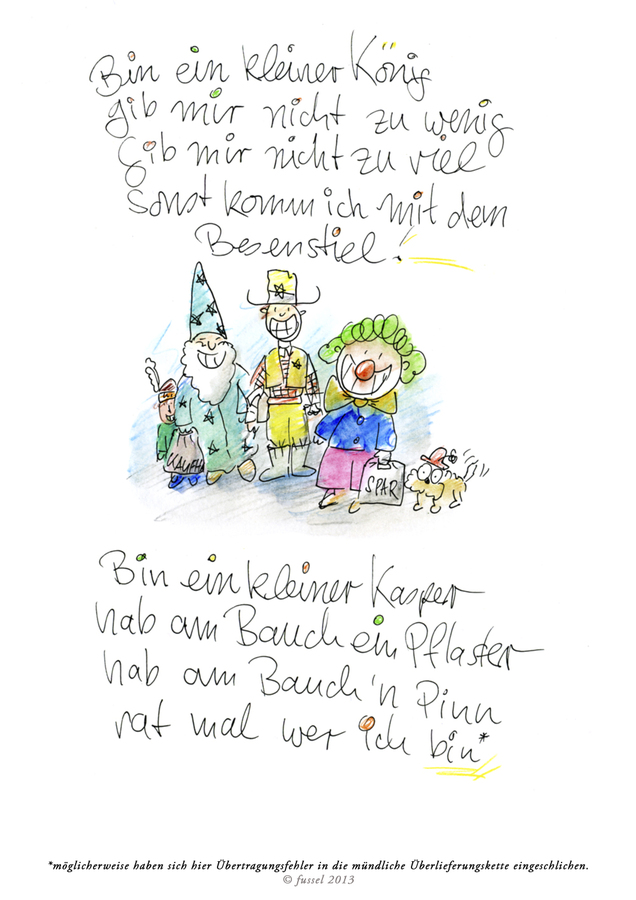 Bin ein kleiner König
gib mir nicht zu wenig
Gib mir nicht zu viel
Sonst komm ich mit dem
Besenstiel!
SPAR
Bin ein kleiner Kasper
hab am Bauch ein Pflaster
hab am Bauch 'n Pinn
rat mal wer ich bin*
*möglicherweise haben sich hier Übertragungsfehler in die mündliche Überlieferungskette eingeschlichen.
© fussel 2013